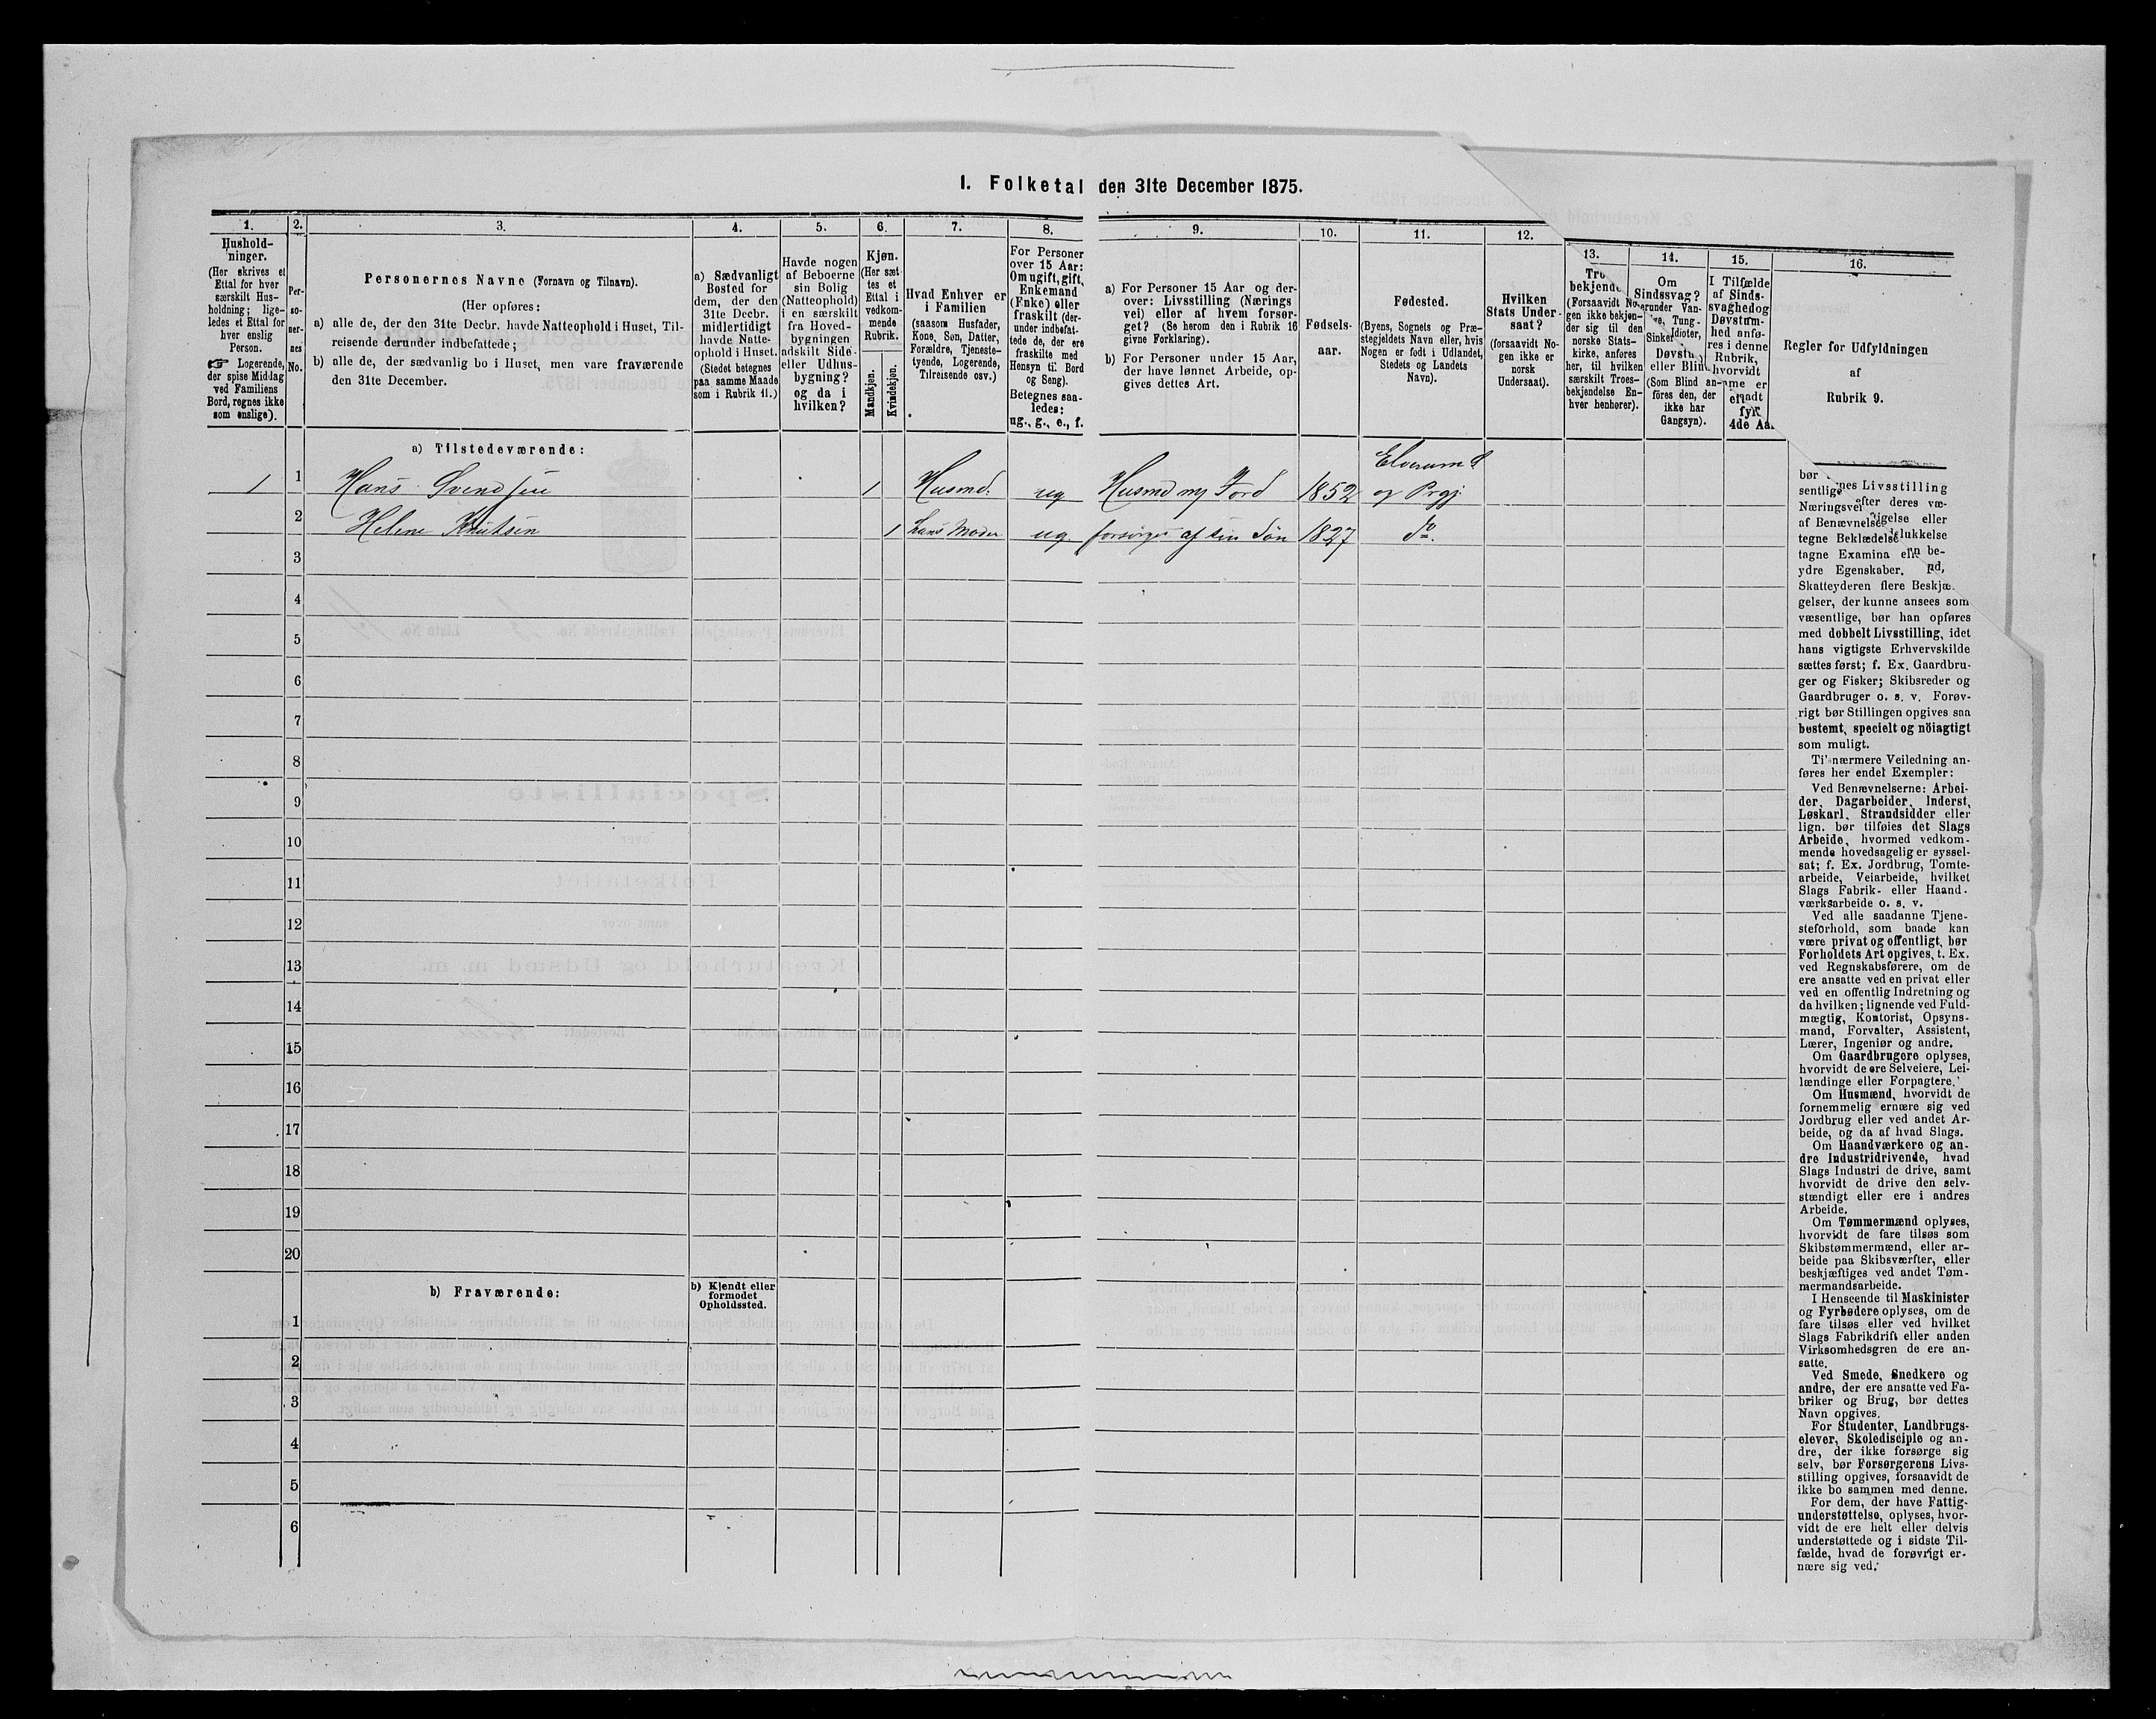 1. Folketal den 31te December 1875.
1. 2. 3. 4. 5. 6. 7. 8. 9. 10. 11. 12. 13. 14. 15. 16.
Hushold-
ninger.
(Her skrives et
Ettal for hver
særskilt Hus-
holdning; lige-
ledes et Ettal for
hver enslig
Person.
☞ Logerende,
der spise Middag
ved Familiens
Bord, regnes ikke
som enslige).
Per-
so-
ner-
nes
No.
Personernes Navne (Fornavn og Tilnavn).
(Her opføres:
a) alle de, der den 31te Decbr. havde Natteophold i Huset, Til-
reisende derunder indbefattede;
b) alle de, der sædvanlig bo i Huset, men vare fraværende
den 31te December.
a) Sædvanligt
Bosted for
dem, der den
31te Decbr.
midlertidigt
havde Natte-
ophold i Huset.
(Stedet betegnes
paa samme Maade
som i Rubrik 11.)
Havde nogen
af Beboerne
sin Bolig
(Natteophold)
i en særskilt
fra Hoved-
bygningen
adskilt Side-
eller Udhus-
bygning?
og da i
hvilken?
Kjøn.
(Her sæt-
tes et
Ettal i
vedkom-
mende
Rubrik.
Mandkjøn.
Kvindekjøn.
Hvad Enhver er
i Familien
(saasom Husfader,
Kone, Søn, Datter,
Forældre, Tjeneste-
tyende, Logerende,
Tilreisende osv.)
For Personer
over 15 Aar:
Om ugift, gift,
Enkemand
(Enke) eller
fraskilt (der-
under indbefat-
tede de, der ere
fraskilte med
Hensyn til Bord
og Seng).
Betegnes saa-
ledes:
ug., g., e., f.
a) For Personer 15 Aar og der-
over: Livsstilling (Nærings
vei) eller af hvem forsør-
get? (Se herom den i Rubrik 16
givne Forklaring).
b) For Personer under 15 Aar,
der have lønnet Arbeide, op-
gives dettes Art.
Fødsels-
aar.
Fødested.
(Byens, Sognets og Præ-
stegjeldets Navn eller, hvis
Nogen er født i Udlandet,
Stedets og Landets
Navn).
Hvilken
Stats Under-
saat?
(forsaavidt No-
gen ikke er
norsk
Undersaat).
Tro
bekjende
(Forsaavidt No-
gen ikke bekjen-
der sig til den
norske Stats-
kirke, anføres
her, til hvilken
særskilt Troes-
bekjendelse En-
hver henhører).
Om
Sindssvag?
erunder Van-
Tung-
Sinker Idioter,
Døvstu
eller Blin
(Som Blind an-
føres den, der
ikke har
Gangsyn).
I Tilfælde
af Sinds-
svaghed og
Døvstum-
hed anfø-
res i denne
Rubrik,
hvorvidt
me er
4de Aa
Regler for Udfyldningen
af
Rubrik 9.
a) Tilstedeværende:
1 1 Hans Svendsen 1 Husmd. ug Husmd m Jord 1852 Elverum S og Prgj
2 Helene Knutsen 1 hans Moder ug. forsørges af sin Søn 1827 do.
3
4
5
6
7
8
9
10
11
12
13
14
15
16
17
18
19
20
b) Fraværende:
b) Kjendt eller
formodet
Opholdssted.
1
2
3
4
5
6
bør nes Livsstilling
sentlige efter deres væ-
Næringsvei igelse eller
af Benævnelse lukkelse
tegne Beklædelse
tagne Examina ell n be-
ydre Egenskaber. nd,
Skatteyderen flere Beskjæ
gelser, der kunne ansees som
væsentlige, bør han opføres
med dobbelt Livsstilling, idet
hans vigtigste Erhvervskilde
sættes først; f. Ex. Gaardbru-
ger og Fisker; Skibsreder og
Gaardbruger o. s. v. Forøv-
rigt bør Stillingen opgives saa
bestemt, specielt og nöiagtigt
som muligt.
Til nærmere Veiledning an-
føres her endel Exempler:
Ved Benævnelserne: Arbei-
der, Dagarbeider, Inderst,
Løskarl, Strandsidder eller
lign. bør tilføies det Slags
Arbeide, hvormed vedkom-
mende hovedsagelig er syssel-
sat; f. Ex. Jordbrug, Tomte-
arbeide, Veiarbeide, hvilket
Slags Fabrik- eller Haand-
værksarbeide o. s. v.
Ved alle saadanne Tjene-
steforhold, som baade kan
være privat og offentligt, bør
Forholdets Art opgives, t. Ex.
ved Regnskabsførere, om de
ere ansatte ved en privat eller
ved en offentlig Indretning og
da hvilken; lignende ved Fuld-
mægtig, Kontorist, Opsyns-
mand, Forvalter, Assistent,
Lærer, Ingeniør og andre.
Om Gaardbrugere oplyses,
hvorvidt de ere Selveiere, Lei-
lændinge eller Forpagtere.
Om Husmænd, hvorvidt de
fornemmelig ernære sig ved
Jordbrug eller ved andet Ar-
beide, og da af hvad Slags.
Om Haandværkere og an-
dre Industridrivende, hvad
Slags Industri de drive, samt
hvorvidt de drive den selv-
stændigt eller ere i andres
Arbeide.
Om Tømmermænd oplyses,
hvorvidt de fare tilsøs som
Skibstømmermænd, eller ar-
beide paa Skibsværfter, eller
beskjæftiges ved andet Tøm-
mermandsarbeide.
I Henseende til Maskinister
og Fyrbødere oplyses, om de
fare tilsøs eller ved hvilket
Slags Fabrikdrift eller anden
Virksomhedsgren de ere an-
satte.
Ved Smede, Snedkere og
andre, der ere ansatte ved Fa-
briker og Brug, bør dettes
Navn opgives.
For Studenter, Landbrugs-
elever, Skoledisciple og an-
dre, der ikke forsørge sig
selv, bør Forsørgerens Livs-
stilling opgives, forsaavidt de
ikke bo sammen med denne.
For dem, der have Fattig-
understøttelse, oplyses, hvor-
vidt de ere helt eller delvis
understøttede og i sidste Til-
fælde, hvad de forøvrigt er-
nære sig ved.